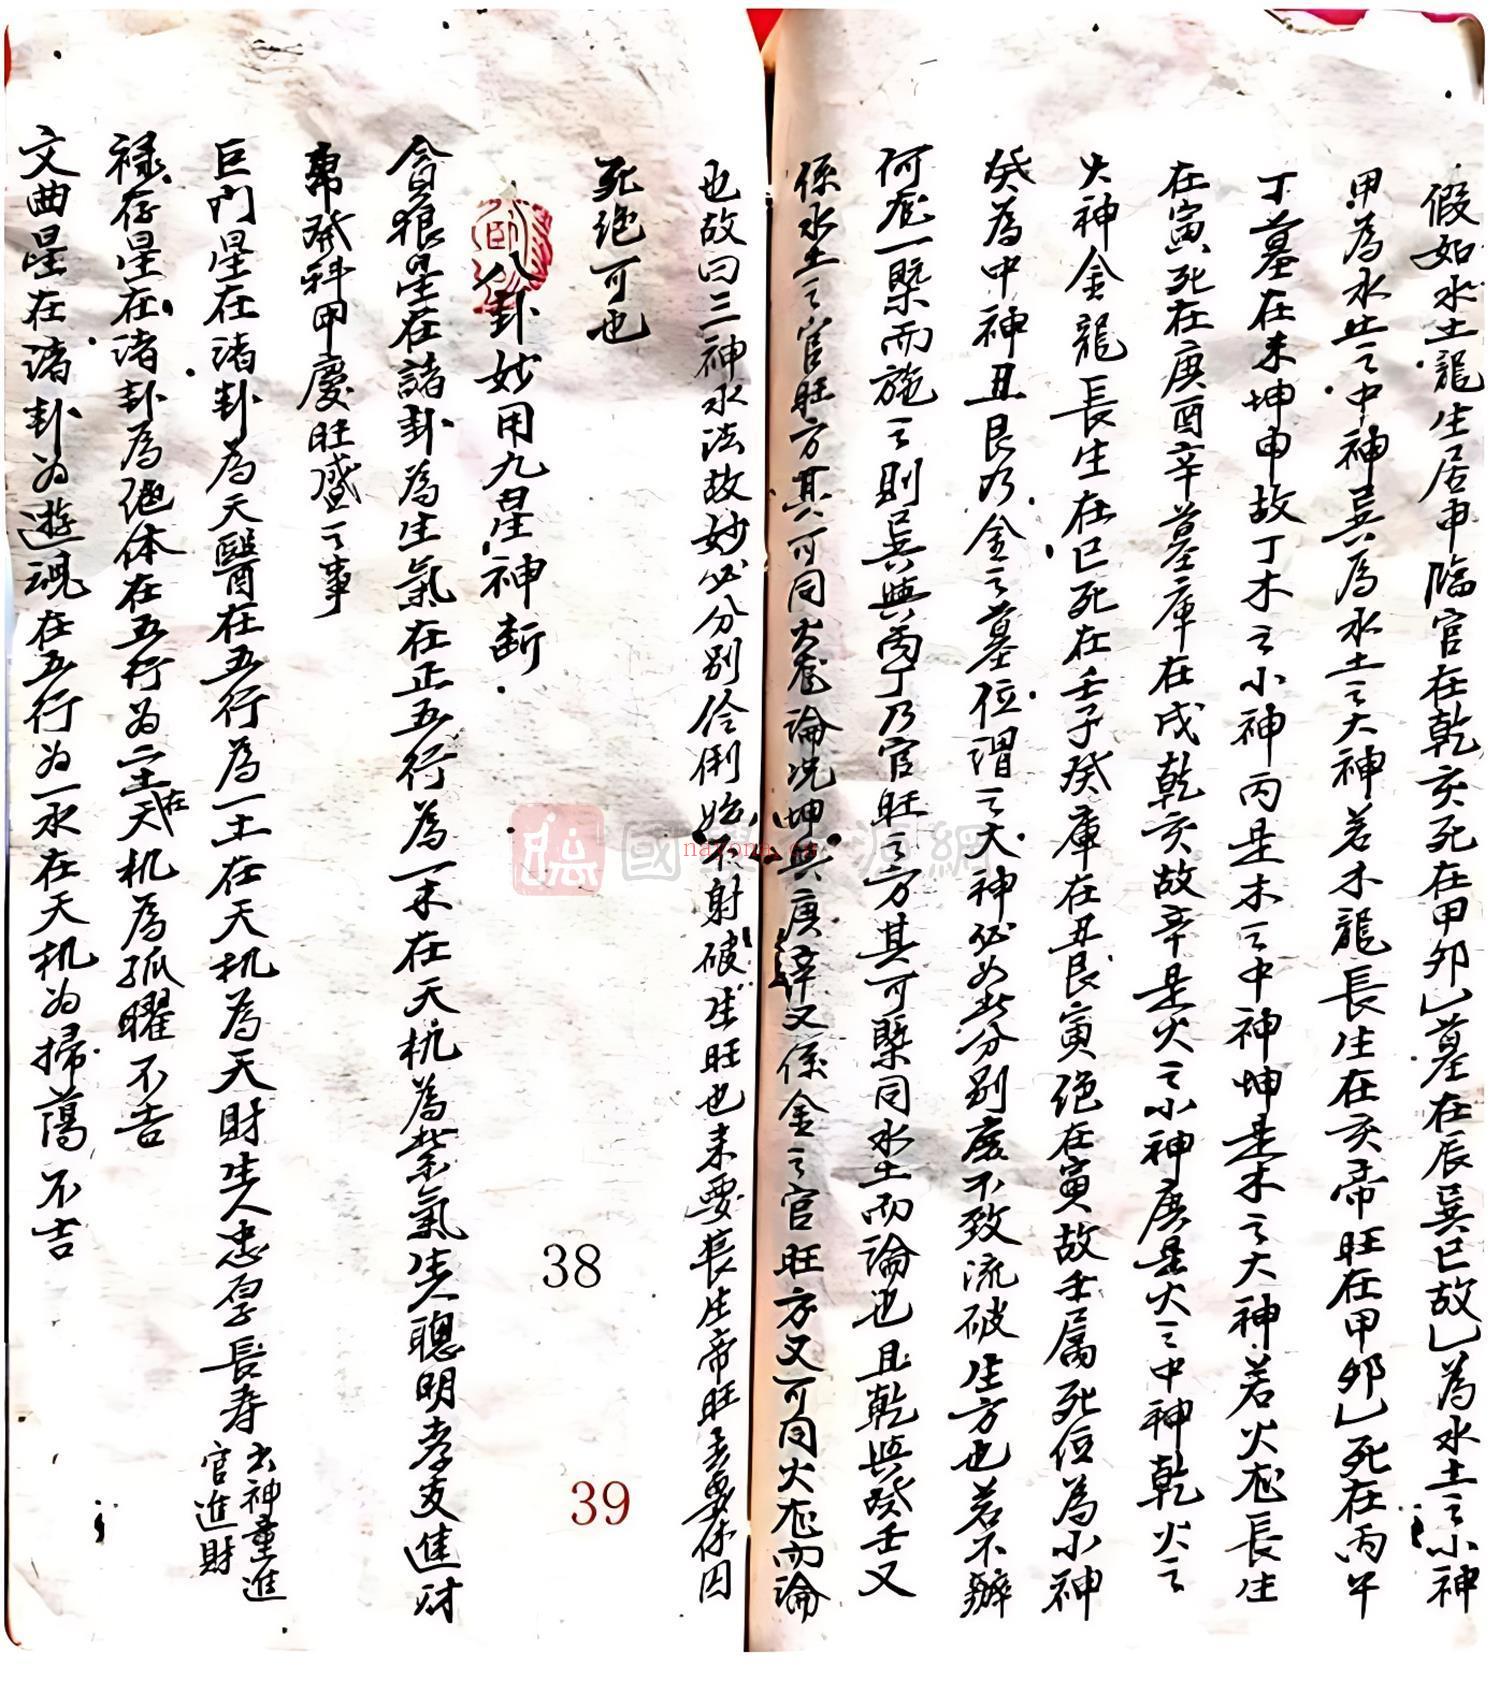 假如水土龍生居申臨官在乾亥死在甲卯乙墓在辰巽巳故乙為水土之小神
甲為水土之中神巽為水土之大神若木龍長生在亥帝旺在甲卯乙死在丙午
丁墓在未坤申故丁木之小神丙是木之中神坤是木之大神若火龙長生
在寅死在庚酉辛墓庫在戌乾亥故辛是火之小神庚是火之中神乾火之
大神金龍長生在巳死在壬子癸庫在丑艮寅绝在寅故壬属死位為小神
癸為中神丑艮乃金之墓位謂之大神必如此分别庶不致流破生方也若不辦
何龙一槩而施之則巽與丙丁乃官旺之方其可槩同水土而論也且乾與癸壬又
係水土之官旺方其可同火龙論况坤與庚辛又係金之官旺方又可同火龙而論
也故曰三神水法故妙必分别伶俐始不射破生旺也来要長生帝旺去要休囚
死绝可也
八卦妙用九星神断
貪狼星在諸卦為生氣在正五行為一木在天机為紫氣生人聰明孝友進财
帛發科甲慶旺盛之事
巨門星在诸卦為天醫在五行為一土在天机為天財生人忠厚長寿
去神童進
官進財
禄存星在诸卦為绝体在五行为土在天机為孤曜不吉
文曲星在诸卦为遊魂在五行为一水在天机为掃蕩不吉
38
39
國學 源網
nayona.cn